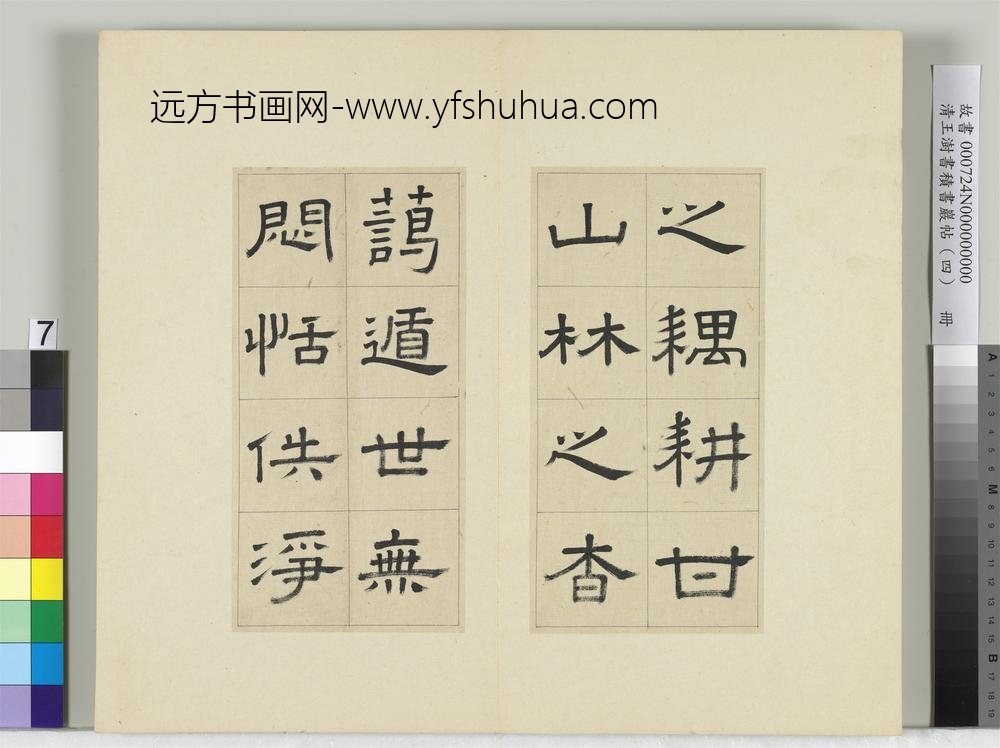 远方书画网-www.yfshuhua.com
故書 000724N000000000
清王澍書積書巖帖（四） 冊
之耦耕甘
山林之杳
藹遁世無
悶恬佚淨
7
A 1 2 3 4 5 6 M 8 9 10 11 12 13 14 15 B 17 18 19